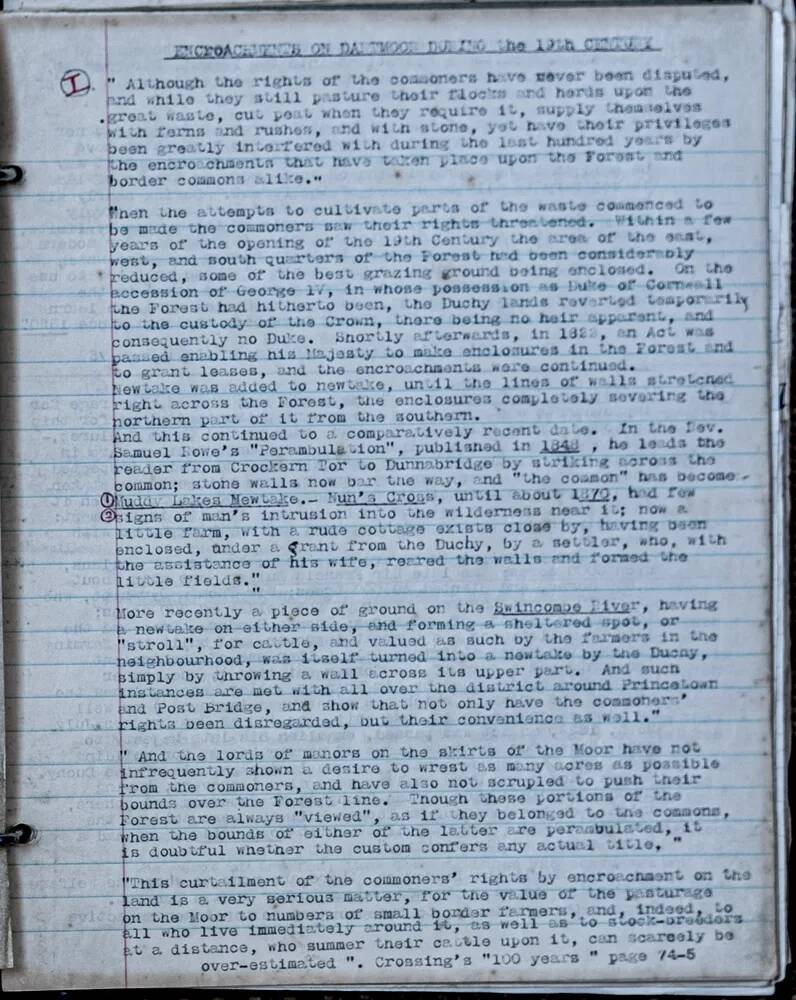 ENCROACHMENTS ON DARTMOOR DURING the 19th CENTURY
I.
" Although the rights of the commoners have never been disputed,
and while they still pasture their flocks and herds upon the
great waste, cut peat when they require it, supply themselves
with ferns and rushes, and with stone, yet have their privileges
been greatly interfered with during the last hundred years by
the encroachments that have taken place upon the Forest and
border commons alike."
When the attempts to cultivate parts of the waste commenced to
be made the commoners saw their rights threatened. Within a few
years of the opening of the 19th Century the area of the east,
west, and south quarters of the Forest had been considerably
reduced, some of the best grazing ground being enclosed. On the
accession of George 1V, in whose possession as Duke of Cornwall
the Forest had hitherto been, the Duchy lands reverted temporarily
to the custody of the Crown, there being no heir apparent, and
consequently no Duke. Shortly afterwards, in 1822, an Act was
passed enabling his Majesty to make enclosures in the Forest and
to grant leases, and the encroachments were continued.
Newtake was added to newtake, until the lines of walls stretched
right across the Forest, the enclosures completely severing the
northern part of it from the southern.
And this continued to a comparatively recent date. In the Rev.
Samuel Rowe's "Perambulation", published in 1848 , he leads the
reader from Crockern Tor to Dunnabridge by striking across the
common; stone walls now bar the way, and "the common" has become -
① Muddy Lakes Newtake.- Nun's Cross, until about 1870, had few
② signs of man's intrusion into the wilderness near it; now a
little farm, with a rude cottage exists close by, having been
enclosed, under a grant from the Duchy, by a settler, who, with
the assistance of his wife, reared the walls and formed the
little fields."
"
More recently a piece of ground on the Swincombe River, having
a newtake on either side, and forming a sheltered spot, or
"stroll", for cattle, and valued as such by the farmers in the
neighbourhood, was itself turned into a newtake by the Duchy,
simply by throwing a wall across its upper part. And such
instances are met with all over the district around Princetown
and Post Bridge, and show that not only have the commoners'
rights been disregarded, but their convenience as well."
" And the lords of manors on the skirts of the Moor have not
infrequently shown a desire to wrest as many acres as possible
from the commoners, and have also not scrupled to push their
bounds over the Forest line. Though these portions of the
Forest are always "viewed", as if they belonged to the commons,
when the bounds of either of the latter are perambulated, it
is doubtful whether the custom confers any actual title, "
"This curtailment of the commoners' rights by encroachment on the
land is a very serious matter, for the value of the pasturage
on the Moor to numbers of small border farmers, and, indeed, to
all who live immediately around it, as well as to stock-breeders
at a distance, who summer their cattle upon it, can scarcely be
over-estimated ". Crossing's "100 years " page 74-5